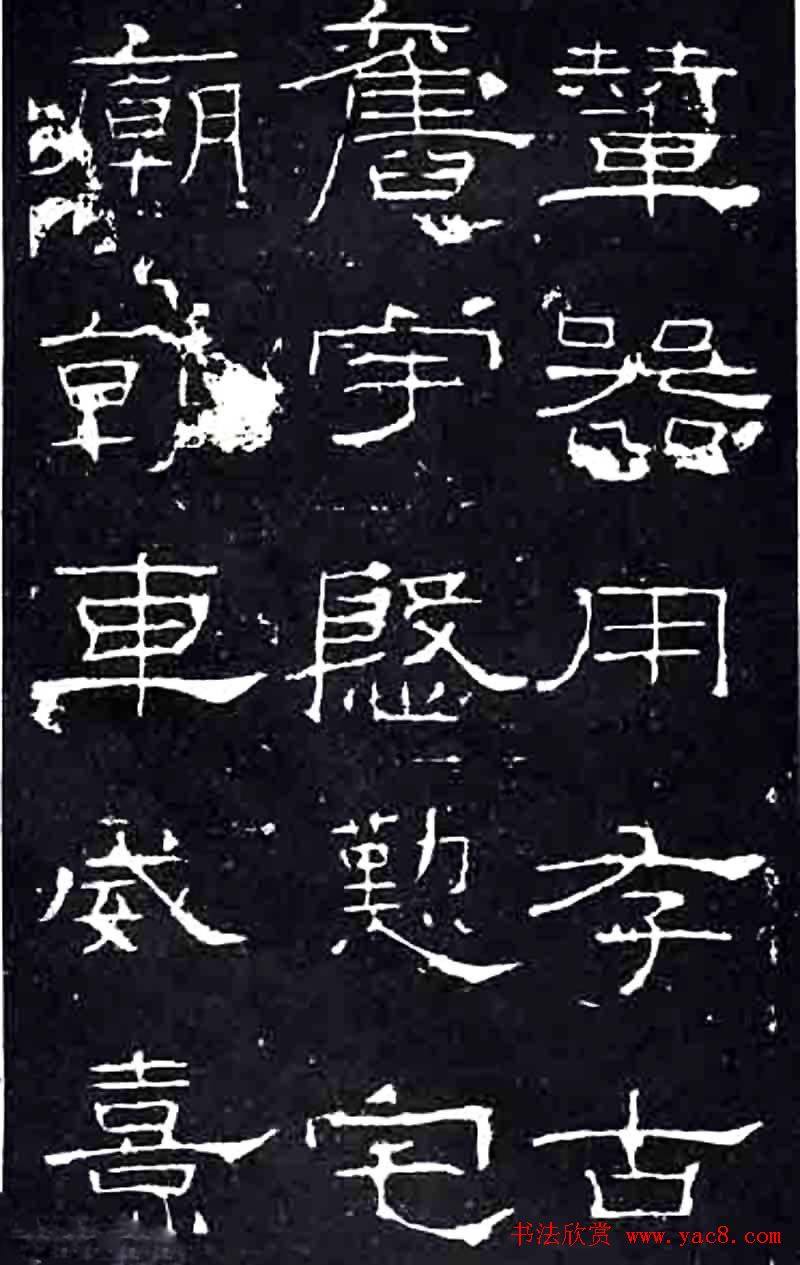 輦器用存古
舊宇慇懃宅
廟朝車威熹
书法欣赏 www.yac8.com